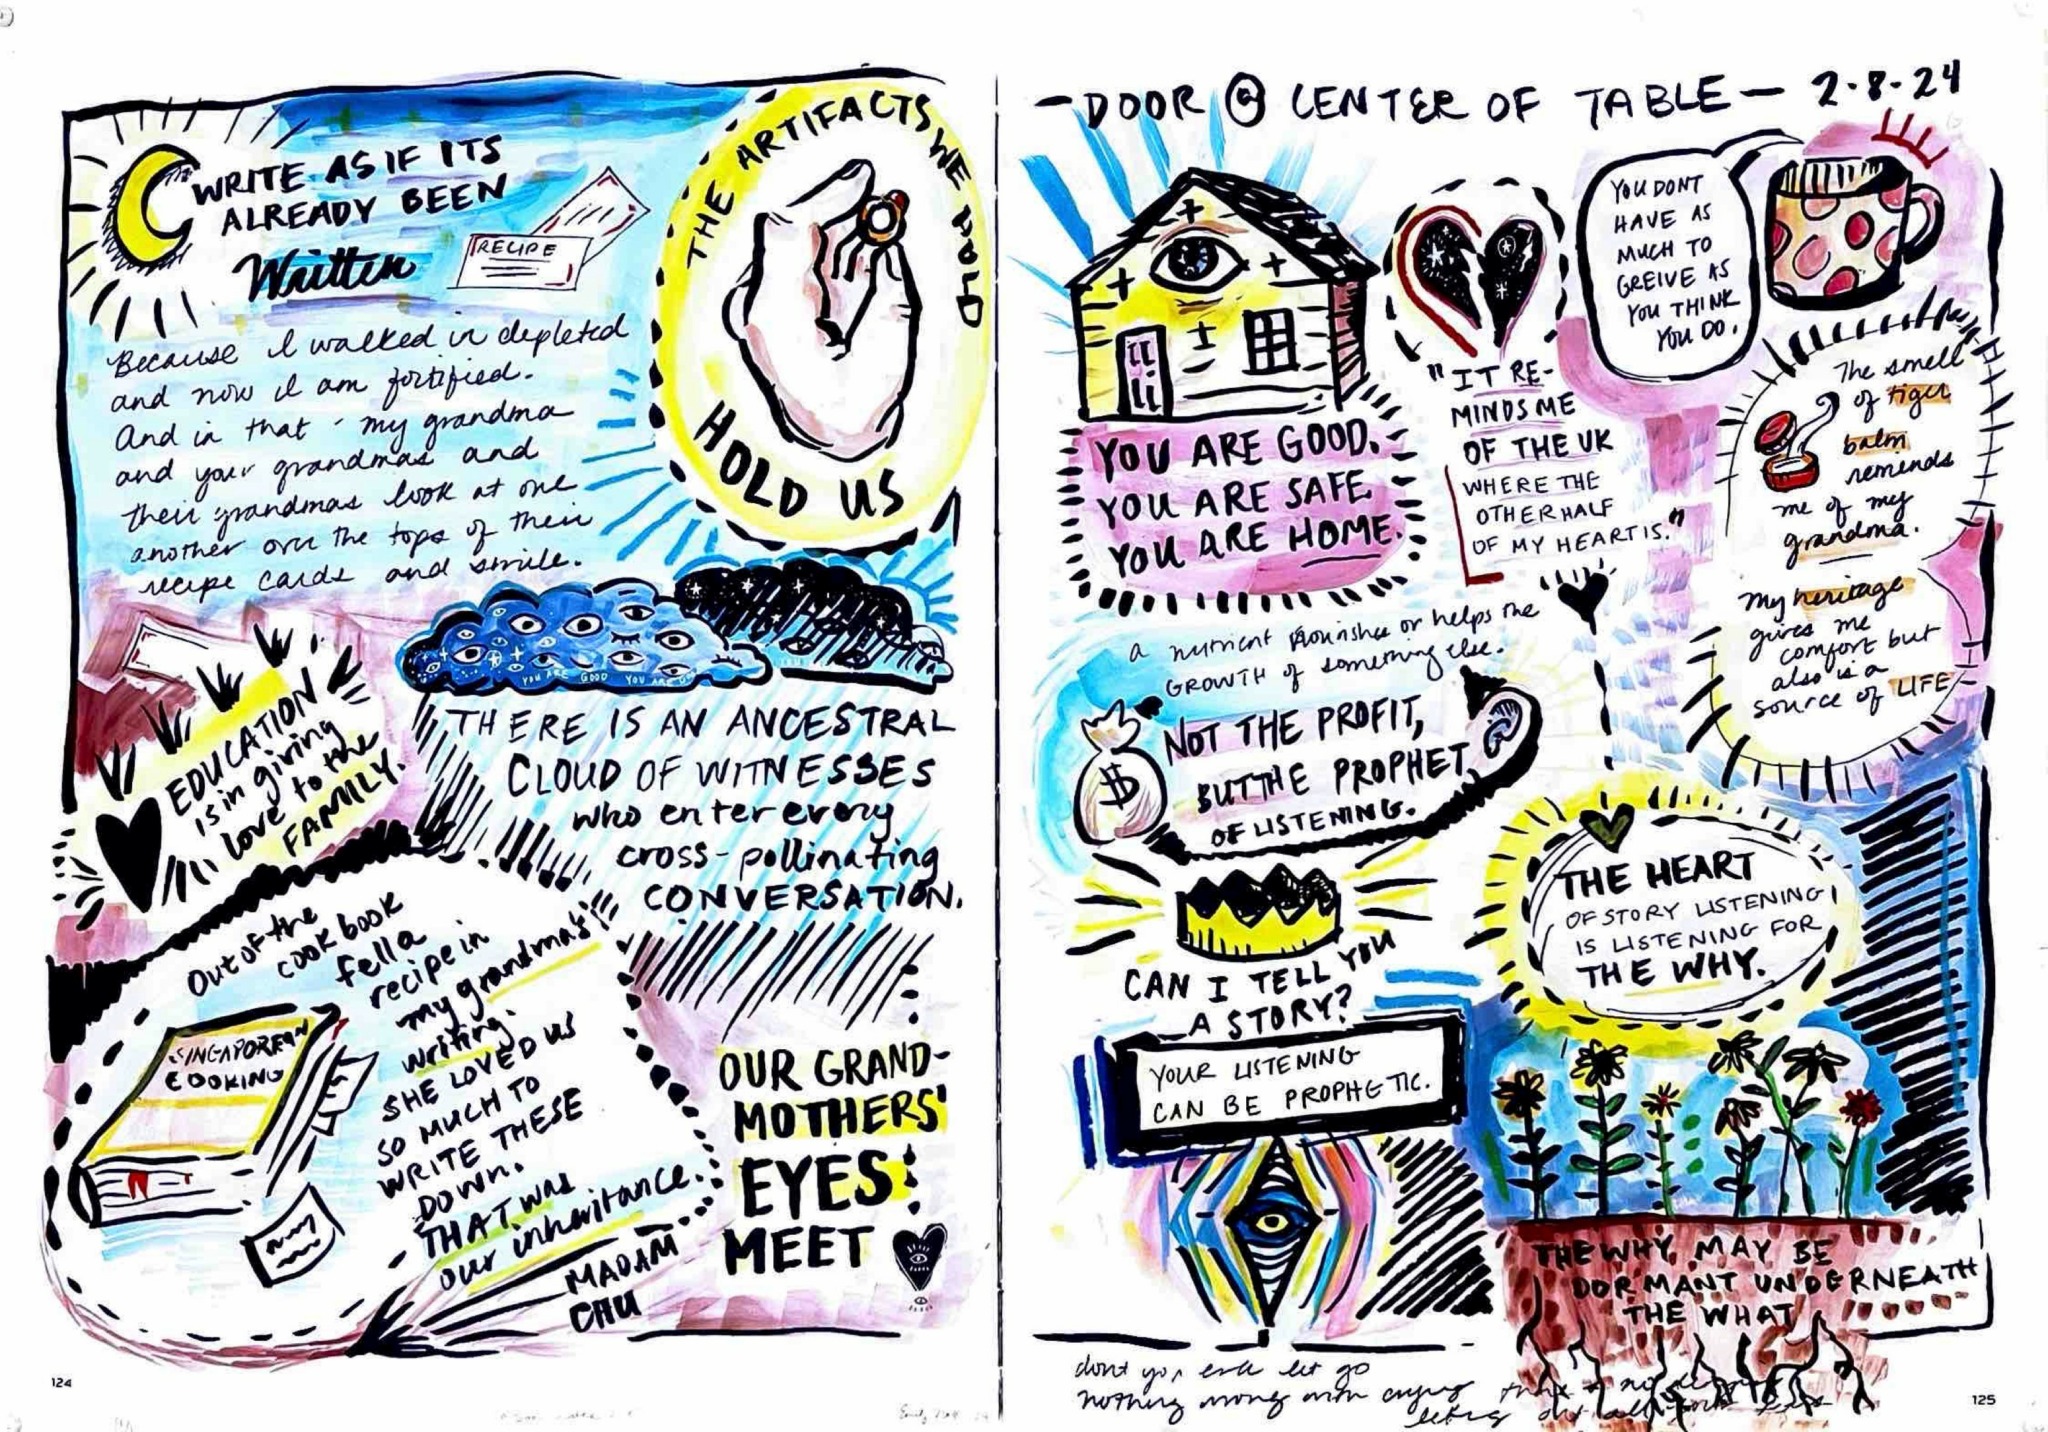 WRITE AS IF ITS
ALREADY BEEN
Written
RECIPE
THE ARTIFACTS WE HOLD
HOLD US
Because I walked in depleted
and now I am fortified.
And in that my grandma
and your grandmas and
their grandmas look at one
another over the tops of their
recipe cards and smile.
YOU ARE GOOD YOU ARE
THERE IS AN ANCESTRAL
CLOUD OF WITNESSES
who enter every
cross-pollinating
CONVERSATION.
EDUCATION
is in giving
love to the
FAMILY.
Out of the
cookbook
fell a
recipe in
my grandma's
writing.
SHE LOVED US
SO MUCH TO
WRITE THESE
DOWN.
THAT was
our inheritance.
MADAM
CHU
SINGAPOREAN
COOKING
OUR GRAND-
MOTHERS'
EYES
MEET
124
-DOOR @ CENTER OF TABLE- 2.8.24
YOU ARE GOOD.
YOU ARE SAFE.
YOU ARE HOME.
"IT RE-
MINDS ME
OF THE UK
WHERE THE
OTHER HALF
OF MY HEART IS."
YOU DONT
HAVE AS
MUCH TO
GREIVE AS
YOU THINK
YOU DO.
The smell
of tiger
balm
reminds
me of my
grandma.
My heritage
gives me
comfort but
also is a
source of LIFE
a nutrient nourishes or helps the
GROWTH of something else.
$
NOT THE PROFIT,
BUT THE PROPHET
OF LISTENING.
CAN I TELL YOU
A STORY?
YOUR LISTENING
CAN BE PROPHETIC.
THE HEART
OF STORY LISTENING
IS LISTENING FOR
THE WHY.
THE WHY MAY BE
DORMANT UNDERNEATH
THE WHAT
dont you let go
nothing wrong with crying
125